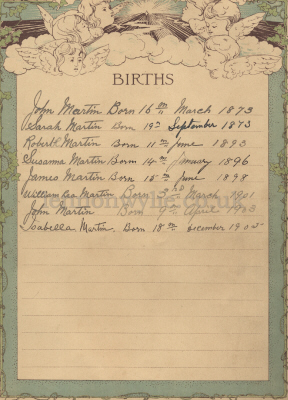 BIRTHS
John Martin Born 16th March 1873
Sarah Martin Born 19th September 1873
Robert Martin Born 11th June 1893
Susanna Martin Born 14th January 1896
James Martin Born 18th June 1898
William Martin Born 3rd March 1901
John Martin Born 9th April 1903
Isabella Martin. Born 18th December 1905